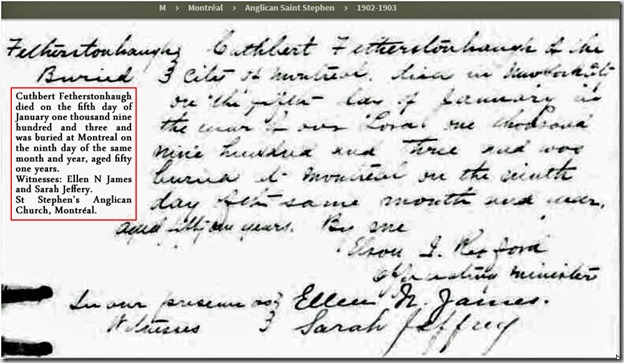 M > Montréal > Anglican Saint Stephen > 1902-1903
Fetherstonhaugh } Cuthbert Fetherstonhaugh of the
Buried } City of Montreal, died in New York City
on the fifth day of January in
the year of our Lord one thousand
nine hundred and three and was
buried at Montreal on the ninth
day of the same month and year,
aged fifty one years. By me
Elson I. Rexford
Officiating minister
In our presence as } Ellen N. James.
Witnesses } Sarah Jeffrey
Cuthbert Fetherstonhaugh
died on the fifth day of
January one thousand nine
hundred and three and
was buried at Montreal on
the ninth day of the same
month and year, aged fifty
one years.
Witnesses: Ellen N James
and Sarah Jeffery.
St Stephen's Anglican
Church, Montréal.